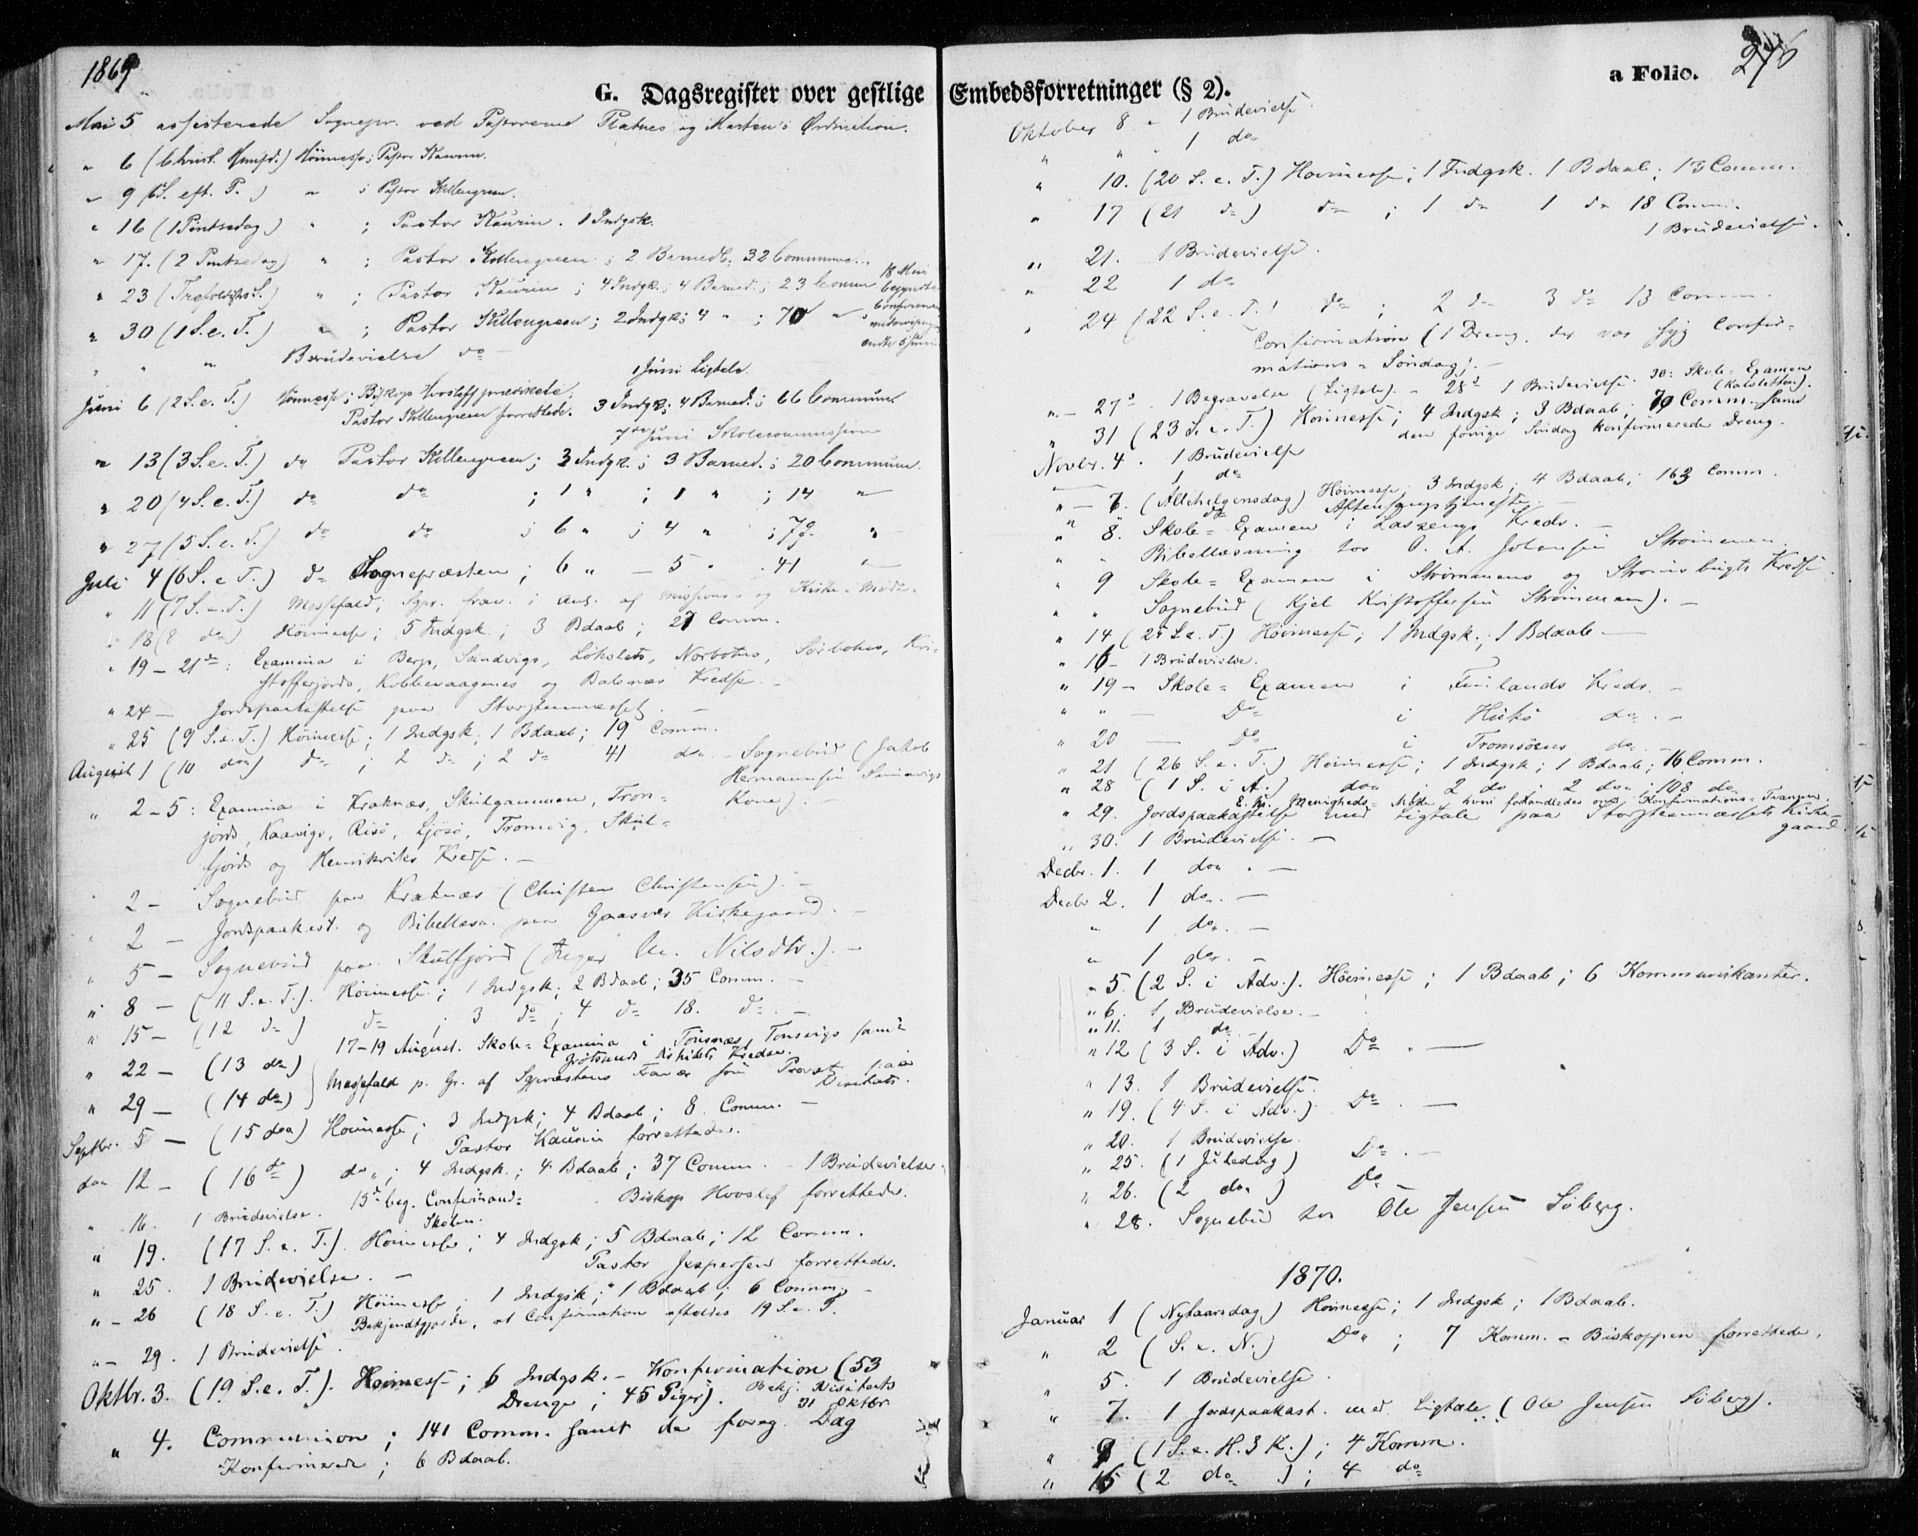 1869
G. Dagsregister over gestlige
Mai 5 assisterede Sognepr. ved Pastorerne Platous og Ordination.
" 6 (Christ. Himfd.) Höimesse; Pastor Kaurin.
" 9 (6 S. eft. P.) " ; Pastor Killengreen.
" 16 (1 Pintsedag) " ; Pastor Kaurin. 1 Indgsk.
" 17. (2 Pintsedag) " ; Pastor Killengreen; 2 Barnedb. 32 Commun.
" 23 (Trefoldighs S.) " ; Pastor Kaurin; 4 Indgk; 4 Barned.; 23 Comm
18 Mai begyndte Confirmand endte 5 Juni
" 30 (1 S. e. T.) " ; Pastor Killengreen; 2 Indgk; 4 " ; 70 "
" " " Brudevielse do
1 Juni Ligtale.
Juni 6 (2 S. e. T.) Höimesse; Biskop Hvoslef prædikede,
Pastor Killengreen forrettede. 3 Indgk; 4 Barned.; 66 Commun
7 Juni Skolecommission
" 13 (3 S. e. T.) do Pastor Killengreen; 3 Indgk.; 3 Barned.; 20 Commun.
" 20 (4 S. e. T.) do do ; 1 " ; 1 " ; 14 "
" 27 (5 S. e. T.) do do ; 6 " ; 4 " ; 77 "
Juli 4 (6 S. e T.) do Sognepræsten; 6 " - 5 " . 41 "
" 11 (7 S. e. T.) Messefald, Sgpr. frav. i Anl. af Missions- og Kirke-Möde.
" 18 (8 do) Höimesse; 5 Indgsk; 3 Bdaab; 27 Comm.
" 19 - 21de: Examina i Berg, Sandvigs, Lökslets, Norbotns, Sörbotns, Kri-
stofferjords, Kobbevaagenes og Balsnæs Kredse.
" 24 - Jordspaakastelse paa Storsteinnæsset.
" 25 (9 S. e. T.) Höimesse; 1 Indgsk, 1 Bdaab; 19 Comm.
August 1 (10 do) do ; 2 do ; 2 do 41 do - Sognebud (Jakob
Hermannsen
Kone).
" 2-5: Examina i Kraknæs, Skulgammen, Trom-
jords, Kaavigs, Risö, Ljösö, Tromvig, Skul-
fjords og Henrikviks Kredse.
" 2 - Sognebud paa Kraknæs (Christen Christensen).
" 2 - Jordspaakast. og Bibellæsn. paa Gaasvær Kirkegaard.
" 5 - Sognebud paa Skulfjord (Inger An. Nilsdtr.).
" 8 - (11 S. e. T.). Höimesse; 1 Indgsk; 2 Bdaab; 35 Comm.
" 15 - (12 do) do ; 3 do ; 4 do 18. do
17-19 August. Skole-Examina i Tönsnæs, Tönsvigs samt
Grötsunds Distrikts Kredse.
" 22 - (13 do) Messefald p. Gr. af Sgpræstens Fravær som Provst paa
Visitats.
" 29 - (14 do)
Septbr. 5 - (15 do) Höimesse; 3 Indgsk; 4 Bdaab; 8 Comm.
Pastor Kaurin forrettede.
do 12 - (16 do) do; 4 Indgsk.; 4 Bdaab; 37 Comm. - 1 Brudevielse.
Biskop Hvoslef forrettede.
" 16. 1 Brudevielse. 15de beg. Confirmand-
Skolen.
" 19. (17 S. e. T.). Höimesse; 4 Indgsk; 5 Bdaab; 12 Comm.
Pastor Jespersen forrettede.
" 25. 1 Brudevielse.
" - 26 (18 S. e. T.) Höimesse; 1 Indgsk; 1 Bdaab; 6 Comm.
Bekjendtgjorde, at Confirmation afholdes 19 S. e. T.
" - 29. 1 Brudevielse.
Oktbr. 3. (19 S. e. T.). Höimesse; 6 Indgsk. - Konfirmation (53
Drenge; 45 Piger). Bekj. Visitats
31 Oktbr
" 4. Communion; 141 Comm. samt de foreg. Dag
Konfirmerede; 6 Bdaab.
Embedsforretninger (§ 2).
a Folio. 276
Oktober 8 - 1 Brudevielse
" " - 1 do
" 10. (20 S. e. T.) Höimesse; 1 Indgsk. 1 Bdaab; 13 Comm.
" 17 (21 do) do ; 1 do 1 do 18 Comm.
1 Brudevielse.
" 21. 1 Brudevielse.
" 22 1 do
" 24 (22 S. e. T.) do ; 2 do 3 do 13 Comm.
Confirmation (1 Dreng, der var syg Confir-
mations-Söndag).
" - 27 1 Begravelse (Ligtale). - 28 1 Brudevielse. 30: Skole-Examen
(Kaldsletten).
" 31 (23 S. e. T.) Höimesse; 4 Indgsk; 3 Bdaab; 79 Comm. samt
den forrige Söndag konfirmerede Dreng.
Novbr. 4. 1 Brudevielse
1 do
" - 7. (Allehelgensdag) Höimesse; 3 Indgsk; 4 Bdaab; 163 Comm.
do Aftensangstjeneste.
" 8. Skole-Examen i Kreds.
" " Bibellæsning hos O. A. Johansen Strömmen.
" 9 Skole-Examen i Strömmens og Strömsbugts Kredse.
" " Sognebud (Kjel Kristoffersen Strömmen).
" 14 (25 S. e. T.) Höimesse; 1 Indgsk.; 1 Bdaab
" 16 - 1 Brudevielse.
" 19 - Skole-Examen i Finlands Kreds.
" " - Do i Hükö do.
" 20 - Do i Tromsöens do.
" 21 (26 S. e. T.) Höimesse; 1 Indgsk; 1 Bdaab; 16 Comm.
" 28 (1 S. i A.) do ; 2 do ; 2 do ; 108 do
E. M. Menigheds-Möde, hvori forhandledes om Konfirmations-Tvangen.
" 29. Jordspaakastelse med Ligtale paa Storsteinnæssets Kirke-
gaard.
" 30. 1 Brudevielse.
Decbr. 1. 1 do.
Decbr 2. 1 do.
" 1 do.
" 1 do.
" 5. (2 S. i Adv.). Höimesse; 1 Bdaab; 6 Kommunikanter.
" 6. 1 Brudevielse.
" 11. 1 do
" 12 (3 S. i Adv.) Do.
" 13. 1 Brudevielse.
" 19. (4 S. i Adv.) Do.
" 20. 1 Brudevielse.
" 25. (1 Juledag) Do.
" 26. (2 do) Do
" 28. Sognebud hos Ole Jensen Söberg.
1870.
Januar 1 (Nytaarsdag) Höimesse; 1 Indgsk; 1 Bdaab.
" 2 (S. e. N.) Do; 7 Komm. - Biskoppen forrettede.
" 5. 1 Brudevielse.
" 7. 1 Jordspaakast. med Ligtale (Ole Jensen Söberg).
" 9 (1 S. e. H. 3 K.); 4 Komm.
" 16 (2 do); 4 do